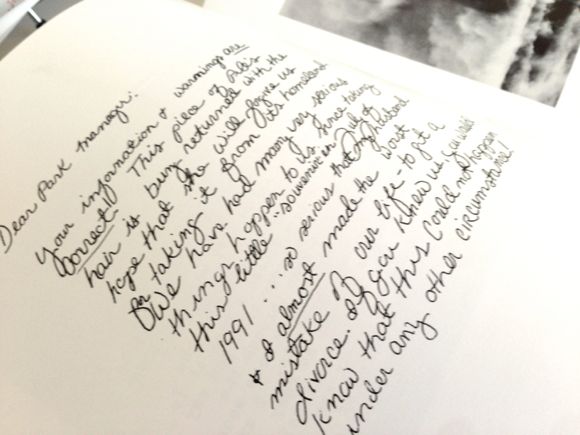 Dear Park Manager:
Your information & warnings are
correct!! This piece of Pele's
hair is being returned with the
hope that she will forgive us
for taking it from its homeland
We have had many very serious
things happen to us since taking
this little "souvenir" of
1991 ... so serious that my husband
& I almost made the worst
mistake of our life - to get a
divorce. If you knew us, you would
know that this could not happen
under any other circumstance!